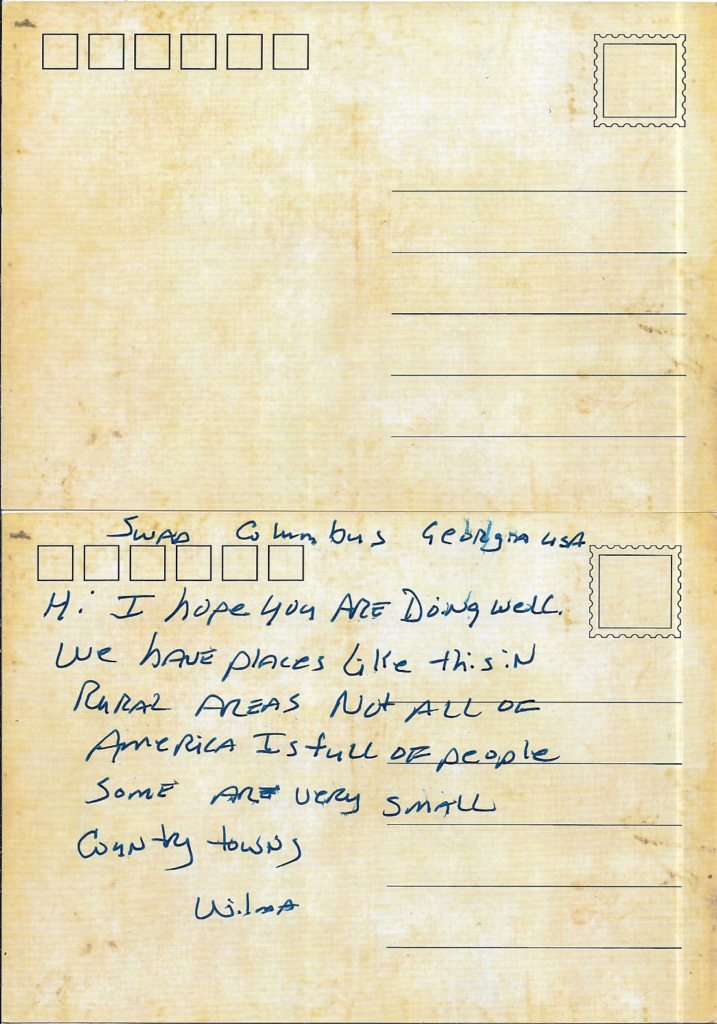 Swap Columbus Georgia USA
Hi I hope you ARE Doing well.
We HAVE places Like this iN
RURAL AREAS Not ALL OF
AmericA Is full OF people
Some ARE very small
Country towns
Wilma